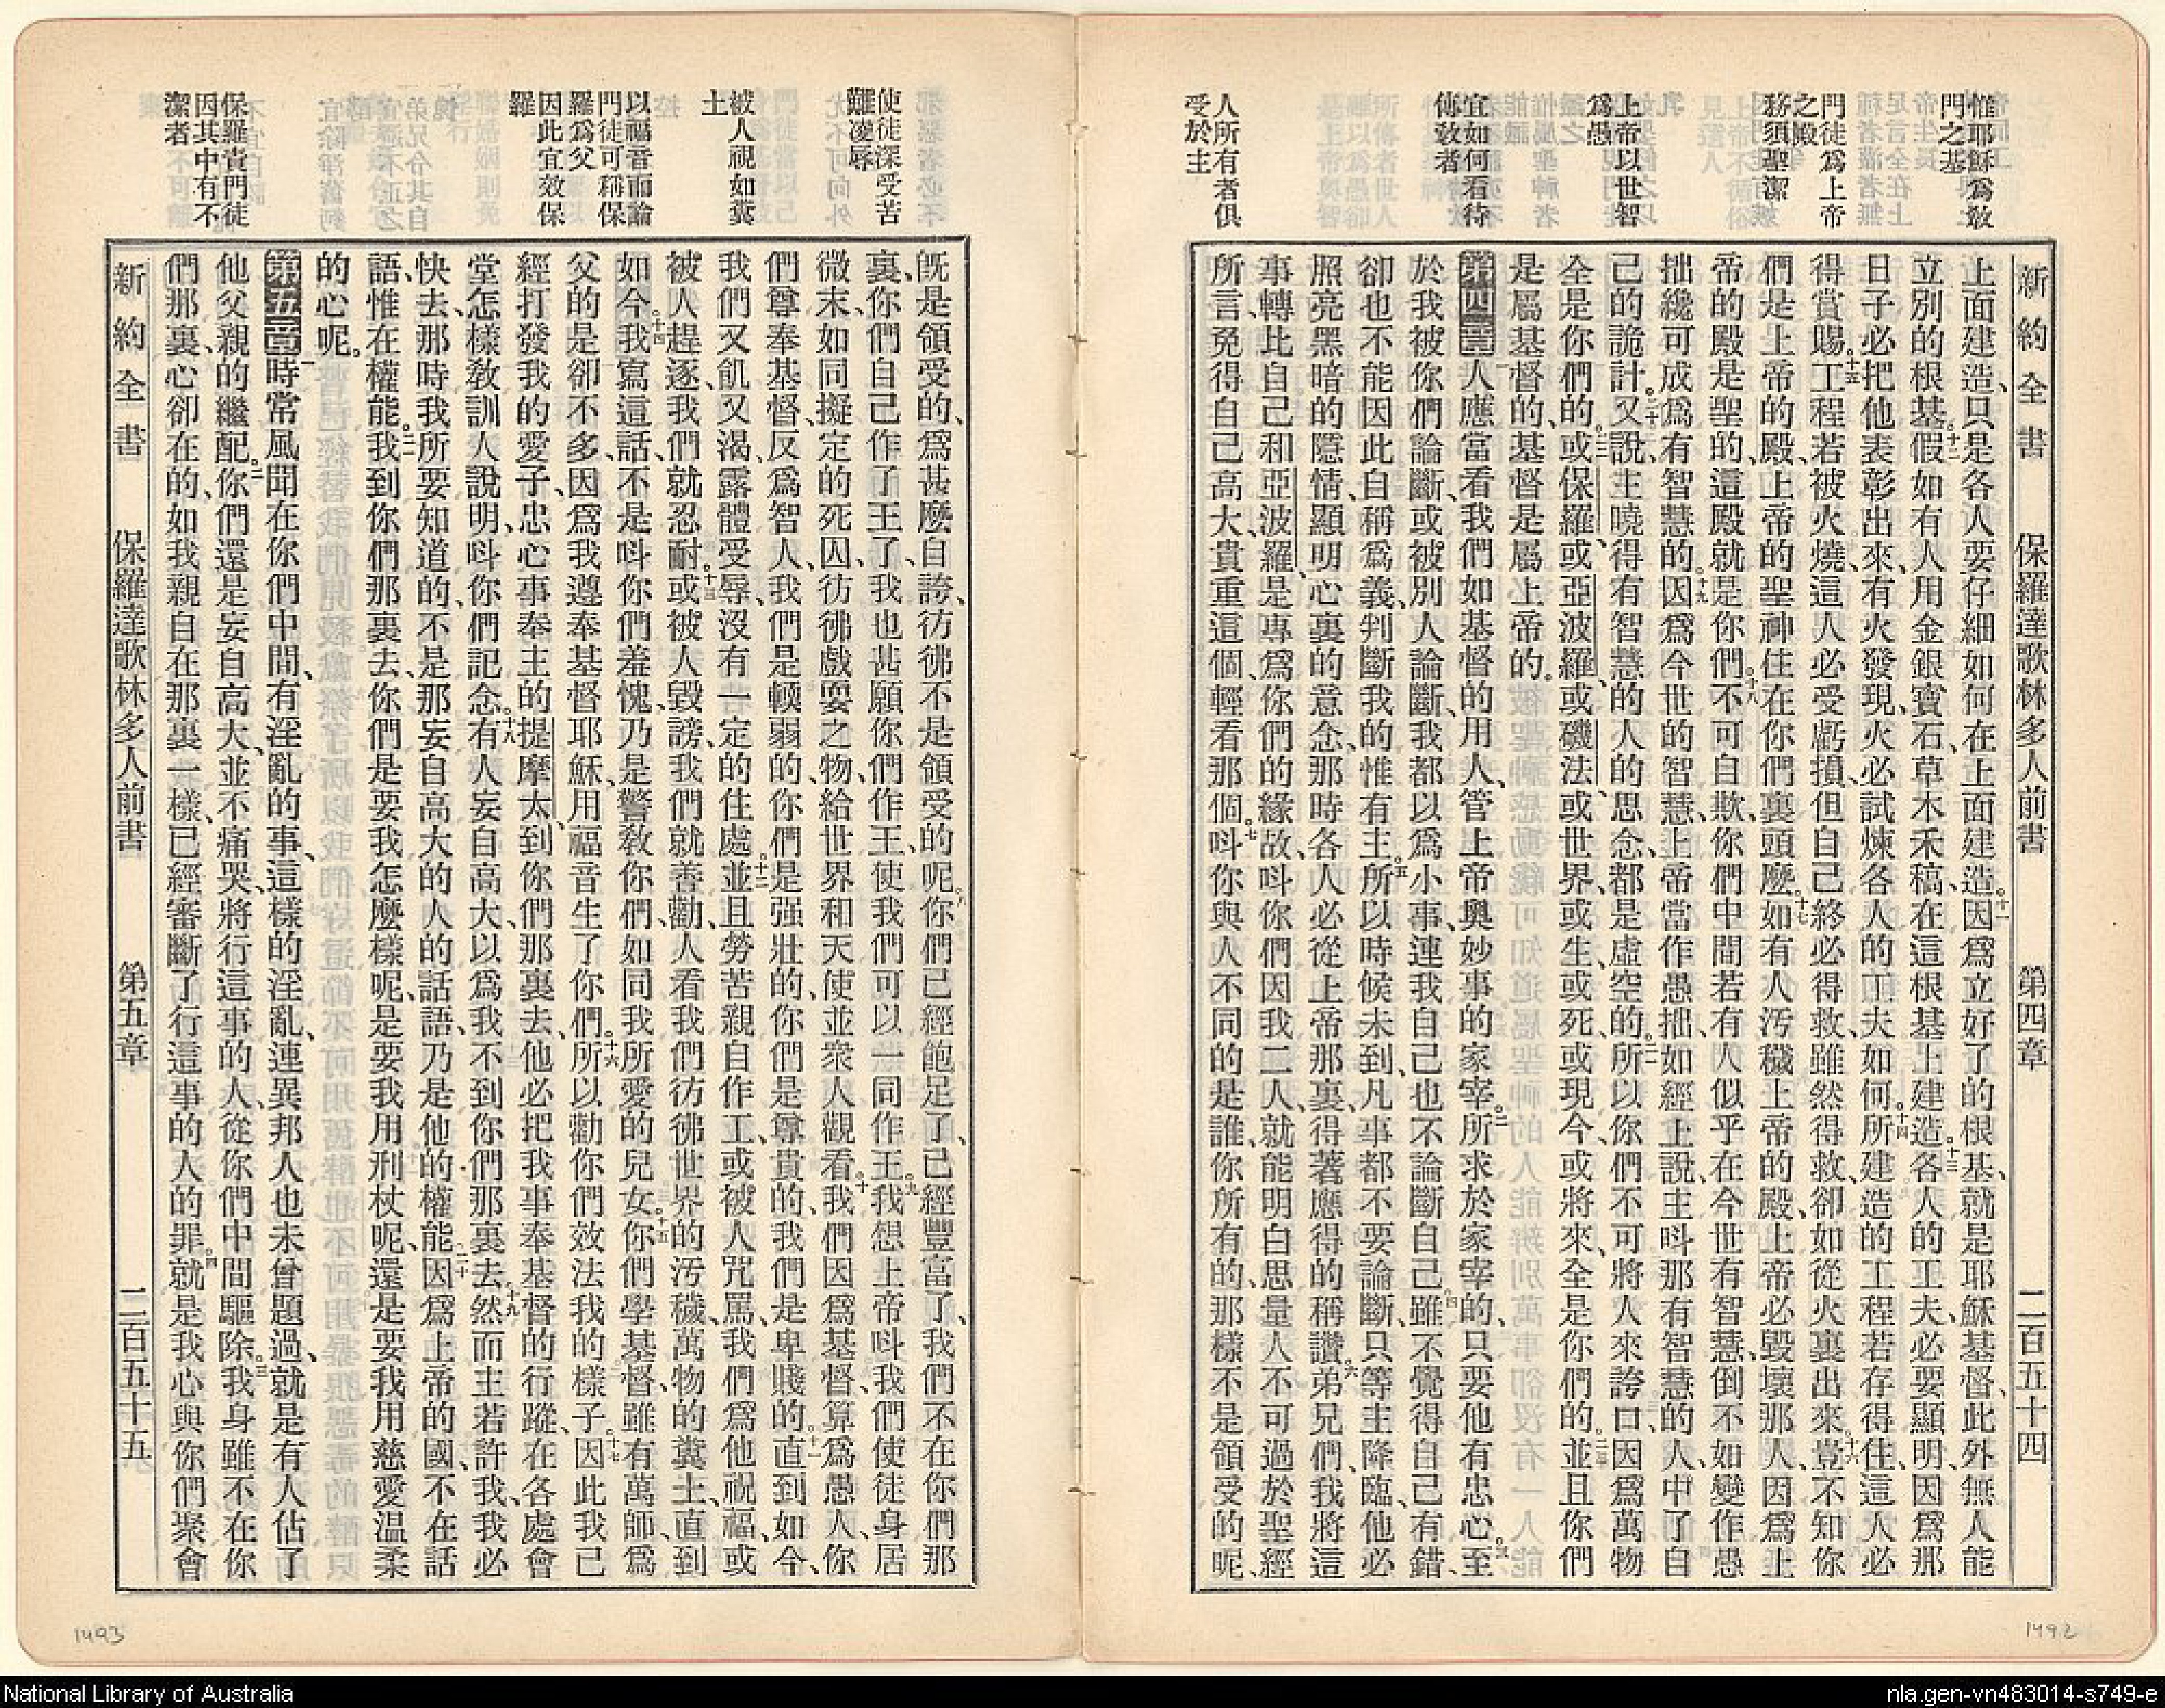 惟耶穌爲敎
門之基
門徒爲上帝
之殿
務須聖潔
上帝以世智
爲愚
宜如何看待
傳敎者
人所有者俱
受於主
新約全書 保羅達歌林多人前書 第四章 二百五十四
上面建造、只是各人要仔細如何在上面建造。十一因爲立好了的根基、就是耶穌基督、此外無人能
立別的根基。十二假如有人用金銀寶石草木禾稿、在這根基上建造。十三各人的工夫必要顯明、因爲那
日子必把他表彰出來、有火發現、火必試煉各人的工夫如何。十四所建造的工程若存得住、這人必
得賞賜。十五工程若被火燒、這人必受虧損、但自己終必得救、雖然得救、卻如從火裏出來。十六豈不知你
們是上帝的殿、上帝的聖神住在你們裏頭麼。十七如有人汚穢上帝的殿、上帝必毀壞那人、因爲上
帝的殿是聖的、這殿就是你們。十八不可自欺、你們中間若有人似乎在今世有智慧、倒不如變作愚
拙、纔可成爲有智慧的。十九因爲今世的智慧、上帝當作愚拙、如經上說、主呌那有智慧的人、中了自
己的詭計。二十又說、主曉得有智慧的人的思念、都是虛空的。二一所以你們不可將人來誇口、因爲萬物
全是你們的。二二或保羅、或亞波羅、或磯法、或世界、或生、或死、或現今、或將來、全是你們的。二三並且你們
是屬基督的、基督是屬上帝的。
第四章一人應當看我們如基督的用人、管上帝奧妙事的家宰。二所求於家宰的、只要他有忠心。三至
於我被你們論斷、或被別人論斷、我都以爲小事、連我自己也不論斷自己。四雖不覺得自己有錯、
卻也不能因此自稱爲義、判斷我的惟有主。五所以時候未到、凡事都不要論斷、只等主降臨、他必
照亮黑暗的隱情、顯明心裏的意念、那時各人必從上帝那裏、得著應得的稱讚。六弟兄們、我將這
事轉比自己和亞波羅、是專爲你們的緣故、呌你們因我二人、就能明白思量人不可過於聖經
所言、免得自己高大、貴重這個、輕看那個。七呌你與人不同的是誰、你所有的、那樣不是領受的呢、
使徒深受苦
難凌辱
被人視如糞
土
以福音而論
門徒可稱保
羅爲父
因此宜效保
羅
保羅責門徒
因其中有不
潔者
旣是領受的、爲甚麼自誇、彷彿不是領受的呢。八你們已經飽足了、已經豐富了、我們不在你們那
裏、你們自己作了王了、我也甚願你們作王、使我們可以一同作王。九我想上帝呌我們使徒身居
微末、如同擬定的死囚、彷彿戲耍之物、給世界和天使並衆人觀看。十我們因爲基督、算爲愚人、你
們尊奉基督、反爲智人、我們是輭弱的、你們是强壯的、你們是尊貴的、我們是卑賤的。十一直到如今、
我們又飢又渴、露體受辱、沒有一定的住處。十二並且勞苦親自作工、或被人咒罵、我們爲他祝福、或
被人趕逐、我們就忍耐。十三或被人毀謗、我們就善勸、人看我們彷彿世界的汚穢、萬物的糞土、直到
如今。十四我寫這話、不是呌你們羞愧、乃是警敎你們、如同我所愛的兒女。十五你們學基督、雖有萬師、爲
父的是卻不多、因爲我遵奉基督耶穌、用福音生了你們。十六所以勸你們效法我的樣子。十七因此我已
經打發我的愛子、忠心事奉主的提摩太、到你們那裏去、他必把我事奉基督的行蹤、在各處會
堂怎樣敎訓人說明、呌你們記念。十八有人妄自高大、以爲我不到你們那裏去。十九然而主若許我、我必
快去、那時我所要知道的、不是那妄自高大的人的話語、乃是他的權能。二十因爲上帝的國、不在話
語、惟在權能。二一我到你們那裏去、你們是要我怎麼樣呢、是要我用刑杖呢、還是要我用慈愛温柔
的心呢。
第五章一時常風聞在你們中間、有淫亂的事、這樣的淫亂、連異邦人也未曾題過、就是有人佔了
他父親的繼配。二你們還是妄自高大、並不痛哭、將行這事的人、從你們中間驅除。三我身雖不在你
們那裏、心卻在的、如我親自在那裏一樣、已經審斷了行這事的人的罪。四就是我心與你們聚會
新約全書 保羅達歌林多人前書 第五章 二百五十五
1493
1492
National Library of Australia
nla.gen-vn483014-s749-e